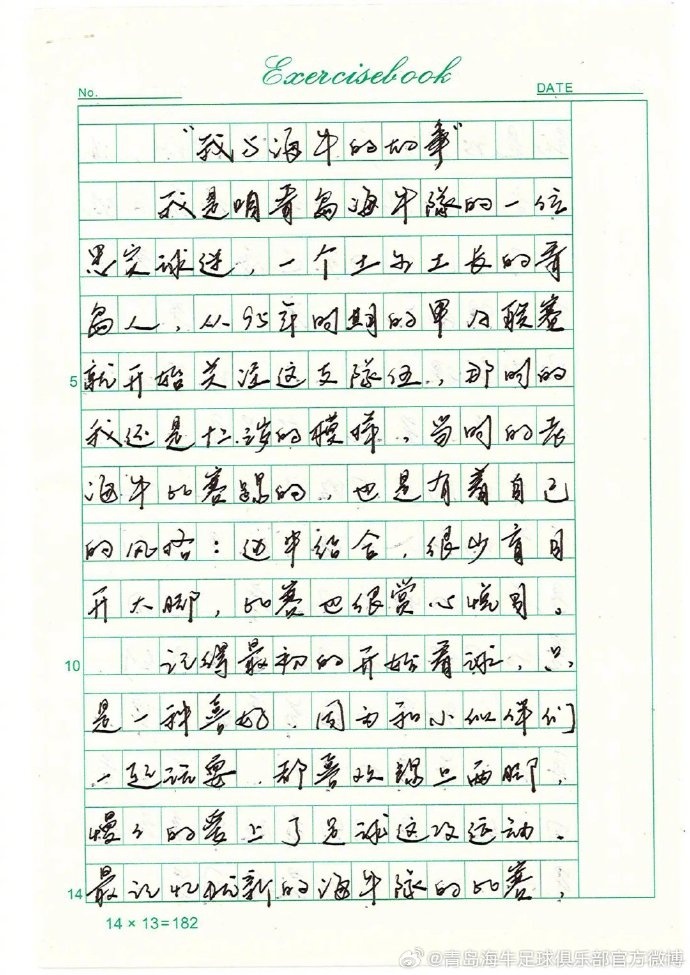 Exercisebook
No.
DATE
“我与海牛的故事”
我是咱青岛海牛队的一位
忠实球迷,一个土生土长的青
岛人,从95年时期的甲B联赛
5 就开始关注这支队伍,那时的
我还是十二岁的模样,当时的老
海牛比赛踢的,也是有着自己
的风格:边中结合,很少盲目
开大脚,比赛也很赏心悦目。
10 记得最初的开始看球,只
是一种喜好,因为和小伙伴们
一起玩耍,都喜欢踢上两脚,
慢々的爱上了足球这项运动。
14 最记忆犹新的海牛队的比赛,
14×13=182
@青岛海牛足球俱乐部官方微博